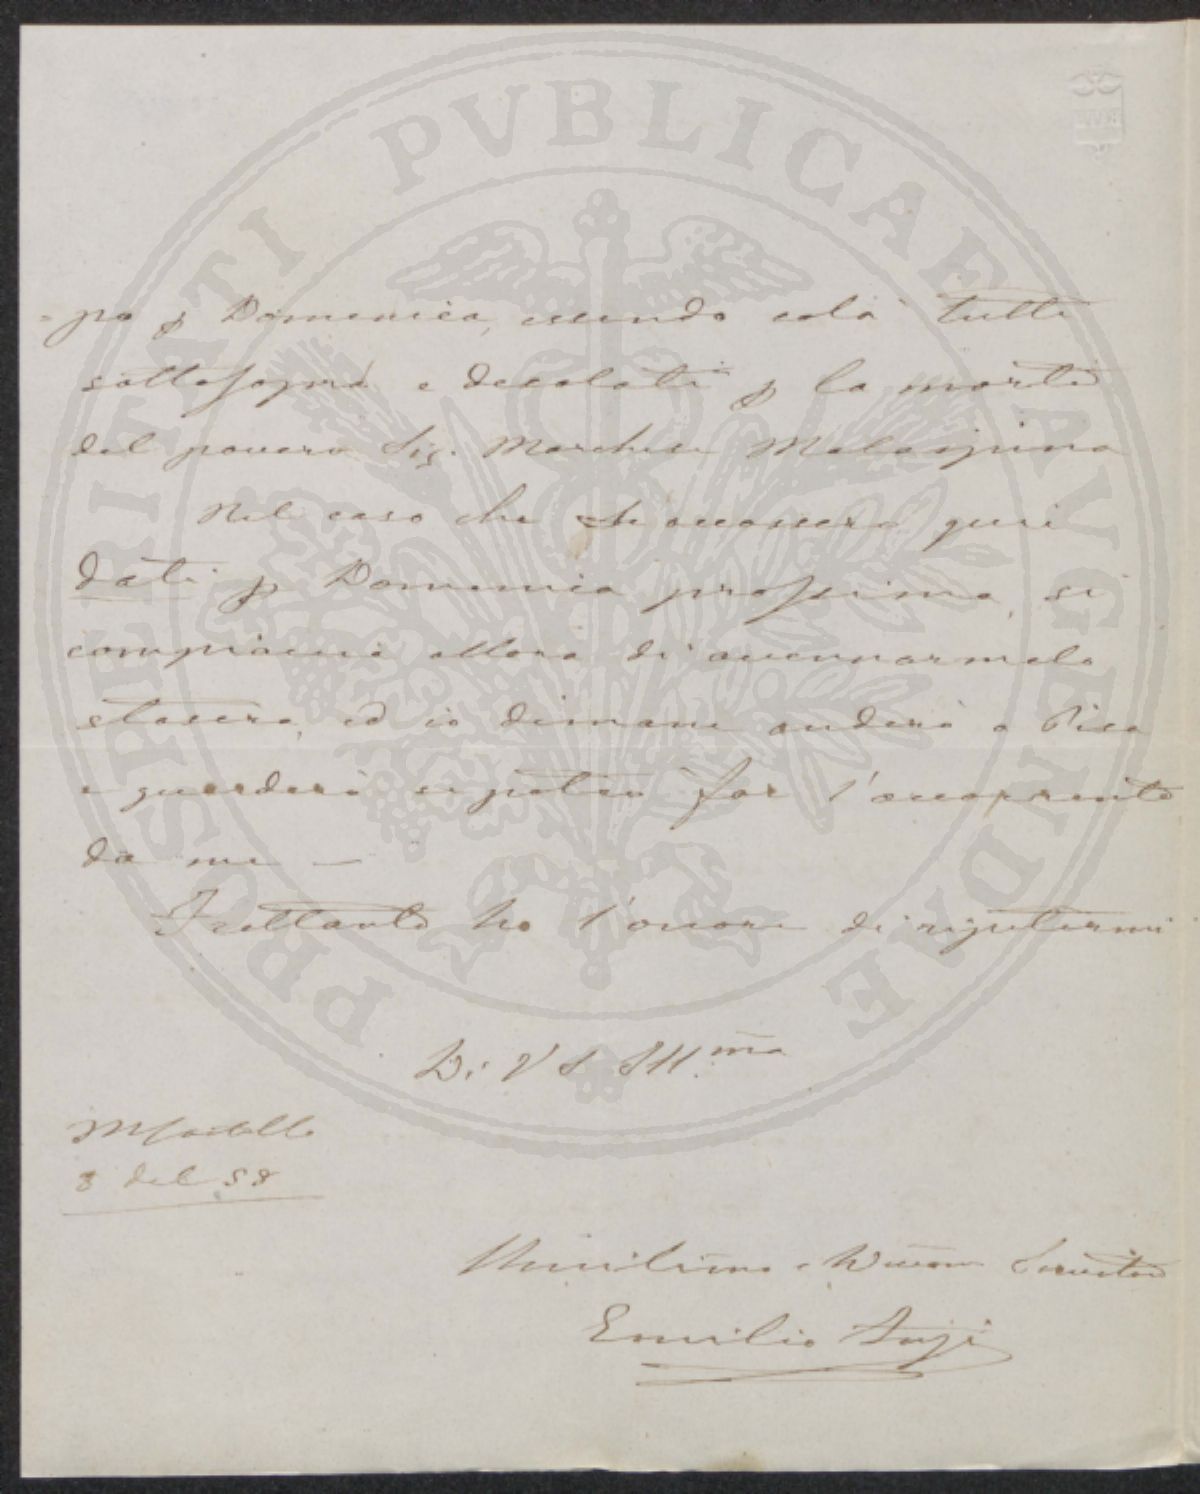 PROSPERITATI PVBLICAE AVGENDAE
-po p Domenica, essendo colà tutti
sottosopra e desolati p la morte
del povero Sig. Marchese Malaspina
Nel caso che occorressero quei
dati p Domenica prossima, si
compiacerà allora di accennarmelo
stasera, ed io dimani anderò a Pisa
e guarderò se potrò far l'occorrente
da me —
Frattanto ho l'onore di ripetermi
Di V S Ill.ma
8 del 58
Umilissimo e Devmo Servitore
Emilio